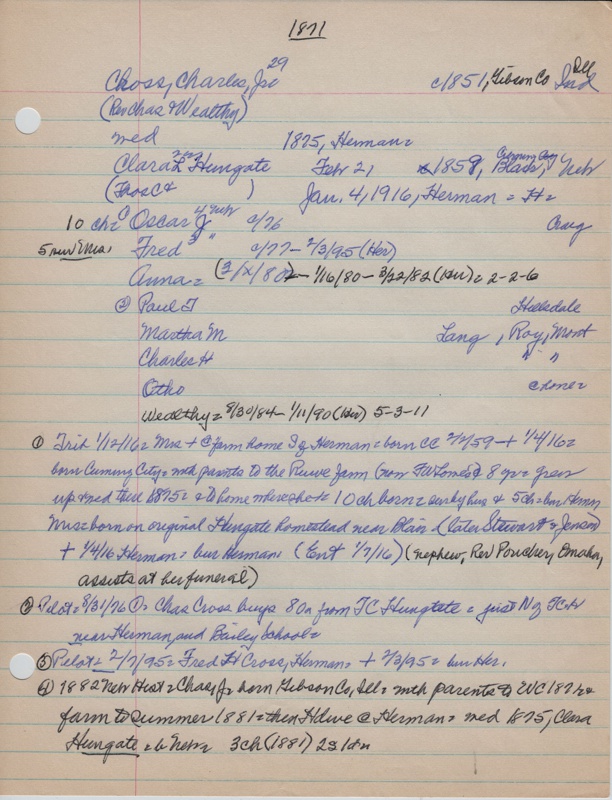 1871
Cross, Charles, Jr 29 c/1851, Gibson Co Ind Ill
(Rev Chas & Wealthy)
med 1875, Herman=
Clara L Hungate Feb 21, 1859, Blair, Neb
(Thos C & ) Jan. 4, 1916, Herman = H=
10 ch= Oscar J 4 Neb c/76 Craig
5 sur Mrs. Fred 3 " c/77 - 2/3/95 (Her)
Anna = (3/X/80) - 1/16/80 - 3/22/82 (Her) = 2-2-6
② Paul T Hillsdale
Martha M Lang , Roy, Mont
Charles H " "
Otho
Wealthy = 8/30/84 - 1/11/90 (Her) 5-3-11
① Trib 1/12/16 = Mrs + @ farm home S of Herman = born CC 2/2/59 - + 1/4/16 =
born Cuming City = mth parents to the farm (now ) 8 yr = grew
up & med there 1875 = to home where she + 10 ch born = sur by hus & 5 ch = bur Herman
Mrs = born on original Hungate homestead near Blair (later Stewart & Jensen)
+ 1/4/16 Herman = bur Herman (Ent 1/7/16) (nephew, Rev Poucher, Omaha,
assists at her funeral)
② Pilot = 8/31/76 = Chas Cross buys 80 a from TC Hungate = just N of TCH
near Herman, and Bailey School =
③ Pilot = 2/7/95 = Fred H Cross, Herman = + 2/3/95 = bur Her.
④ 1882 Neb Hist = Chas, Jr born Gibson Co, Ill = mth parents to WC 187 &
farm to summer 1881 = then Hdwe @ Herman = med 1875, Clara
Hungate = 3 ch (1881) 2 s 1 da